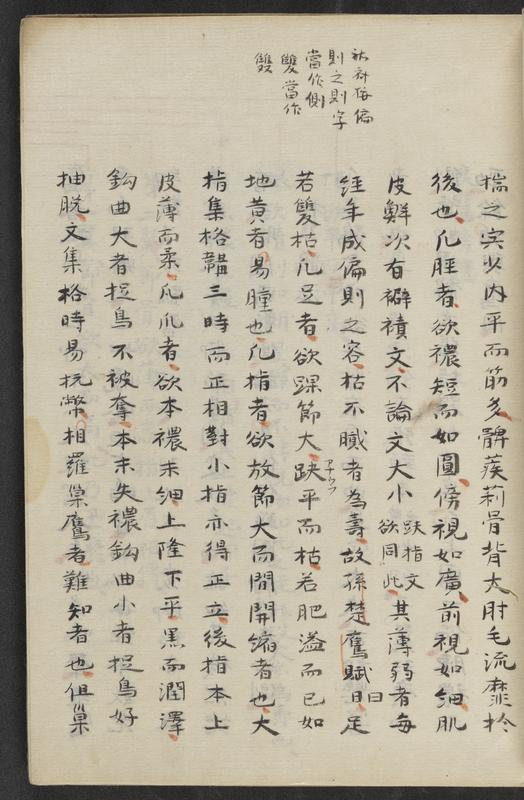 按偏
則之則字
當作側
雙當作
雙
揣之実少内平而筋多髀蒺莉骨背大肘毛流靡於
後也凡脛者欲襛短而如圓傍視如廣前視如細肌
皮鮮次有襞積文不論文大小趺指文欲同此其薄弱者每
經年成偏則之容枯不膱者為壽故孫楚鷹賦曰足
若雙枯凡足者欲踝節大趺平而枯若肥溢而已如
地黄者易腫也凡指者欲放節大而間開縮者也大
指集格韞三時而正相對小指亦得正立後指本上
皮薄而柔凡爪者欲本襛末細上隆下平黒而潤澤
鈎曲大者捉鳥不被奪本末失襛鈎曲小者捉鳥好
抽脱文集格時易抏弊相羅巣鷹者難知者也但巣